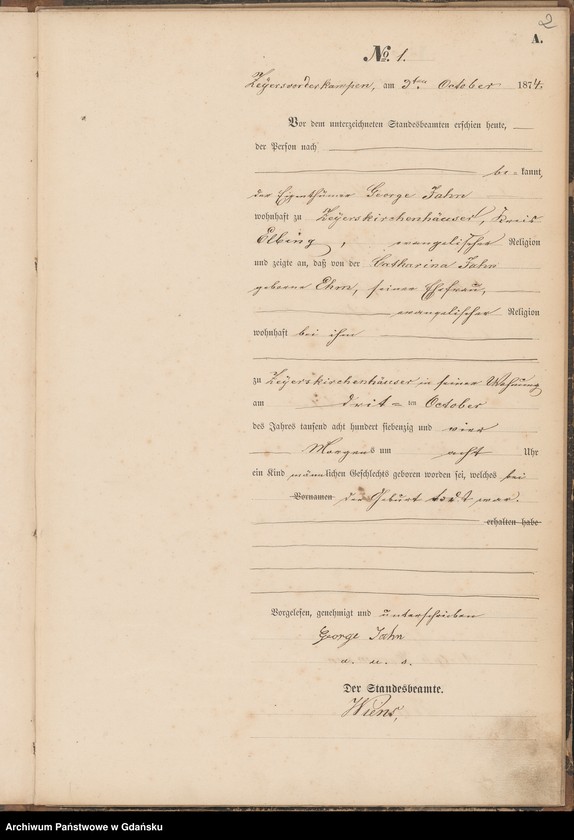 2
A.
No. 1.
Zeyersvorderkampen, am 3ten October 1874.
Vor dem unterzeichneten Standesbeamten erschien heute,
der Person nach
be = kannt,
der Eigenthümer George Jahn
wohnhaft zu Zeyerskirchenhäuser, Kreis
Elbing, evangelischer Religion
und zeigte an, daß von der Catharina Jahn
geborene Ehm, seiner Ehefrau,
evangelischer Religion
wohnhaft bei ihm
zu Zeyerskirchenhäuser in seiner Wohnung
am drit = ten October
des Jahres tausend acht hundert siebenzig und vier
Morgens um acht Uhr
ein Kind männlichen Geschlechts geboren worden sei, welches bei
Vornamen der Geburt todt war.
erhalten habe
Vorgelesen, genehmigt und unterschrieben
George Jahn
Der Standesbeamte.
Wiens,
Archiwum Państwowe w Gdańsku